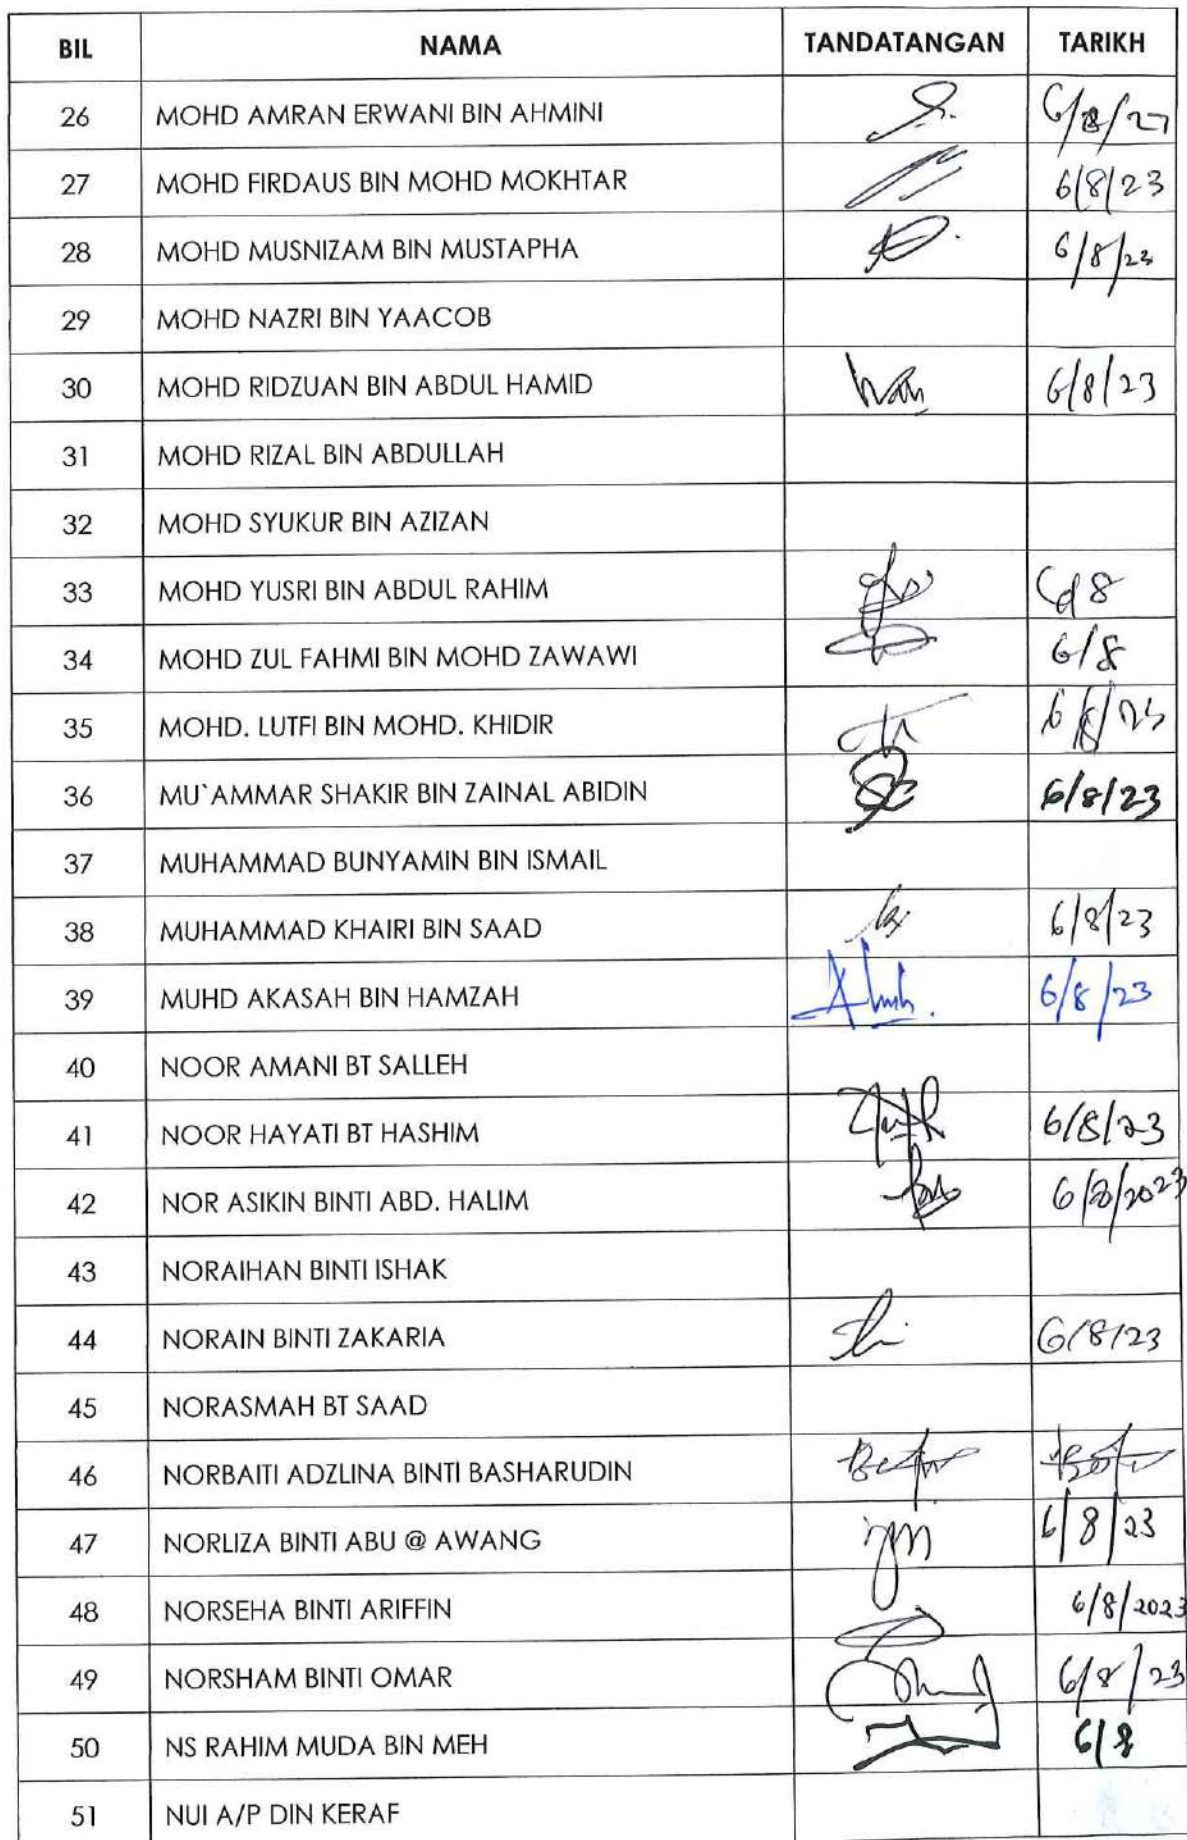 BIL NAMA TANDATANGAN TARIKH
26 MOHD AMRAN ERWANI BIN AHMINI 6/8/23
27 MOHD FIRDAUS BIN MOHD MOKHTAR 6/8/23
28 MOHD MUSNIZAM BIN MUSTAPHA 6/8/23
29 MOHD NAZRI BIN YAACOB
30 MOHD RIDZUAN BIN ABDUL HAMID 6/8/23
31 MOHD RIZAL BIN ABDULLAH
32 MOHD SYUKUR BIN AZIZAN
33 MOHD YUSRI BIN ABDUL RAHIM
34 MOHD ZUL FAHMI BIN MOHD ZAWAWI 6/8
35 MOHD. LUTFI BIN MOHD. KHIDIR 6/8/23
36 MU`AMMAR SHAKIR BIN ZAINAL ABIDIN 6/8/23
37 MUHAMMAD BUNYAMIN BIN ISMAIL
38 MUHAMMAD KHAIRI BIN SAAD 6/8/23
39 MUHD AKASAH BIN HAMZAH 6/8/23
40 NOOR AMANI BT SALLEH
41 NOOR HAYATI BT HASHIM 6/8/23
42 NOR ASIKIN BINTI ABD. HALIM 6/8/2023
43 NORAIHAN BINTI ISHAK
44 NORAIN BINTI ZAKARIA 6/8/23
45 NORASMAH BT SAAD
46 NORBAITI ADZLINA BINTI BASHARUDIN
47 NORLIZA BINTI ABU @ AWANG 6/8/23
48 NORSEHA BINTI ARIFFIN 6/8/2023
49 NORSHAM BINTI OMAR 6/8/23
50 NS RAHIM MUDA BIN MEH 6/8
51 NUI A/P DIN KERAF